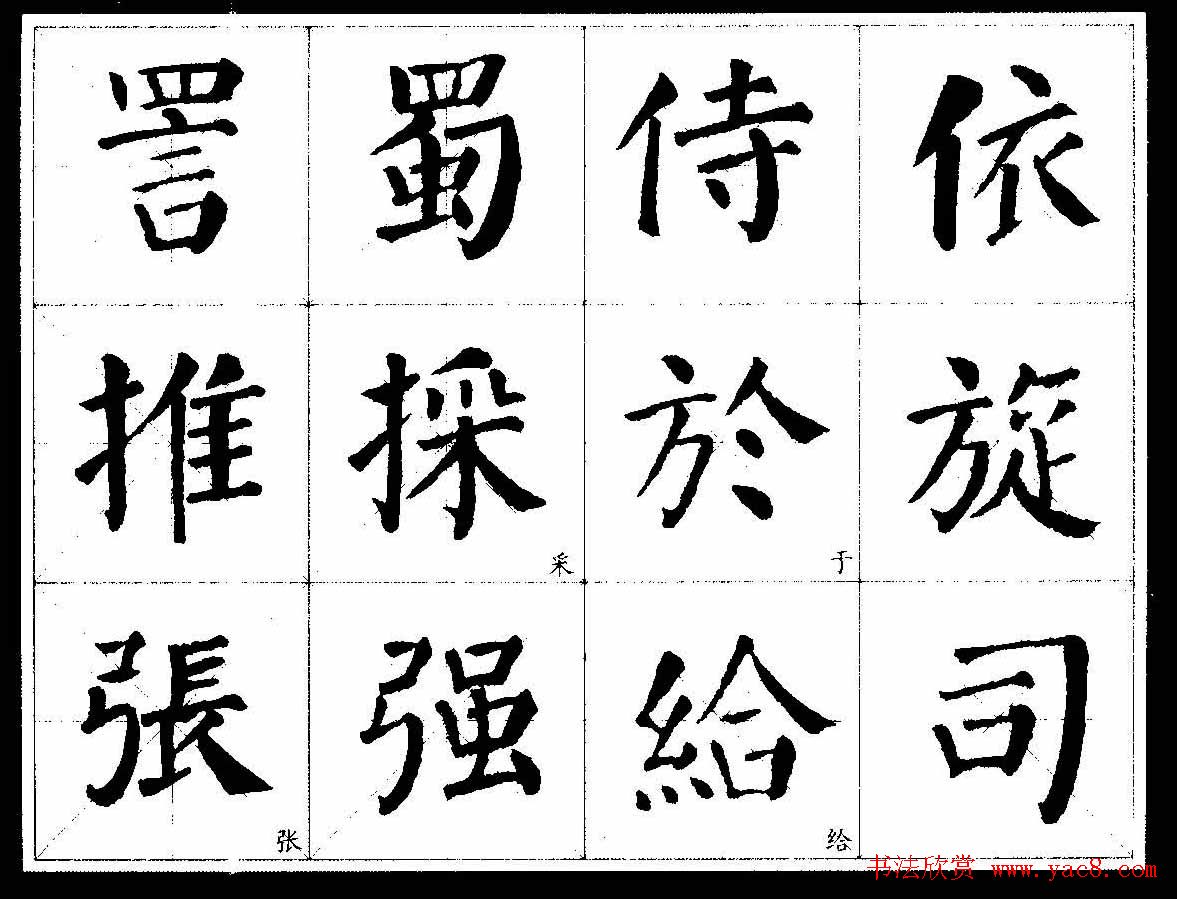 詈 蜀 侍 依
推 採 於 旋
采 于
張 强 給 司
张 给
书法欣赏 www.yac8.com